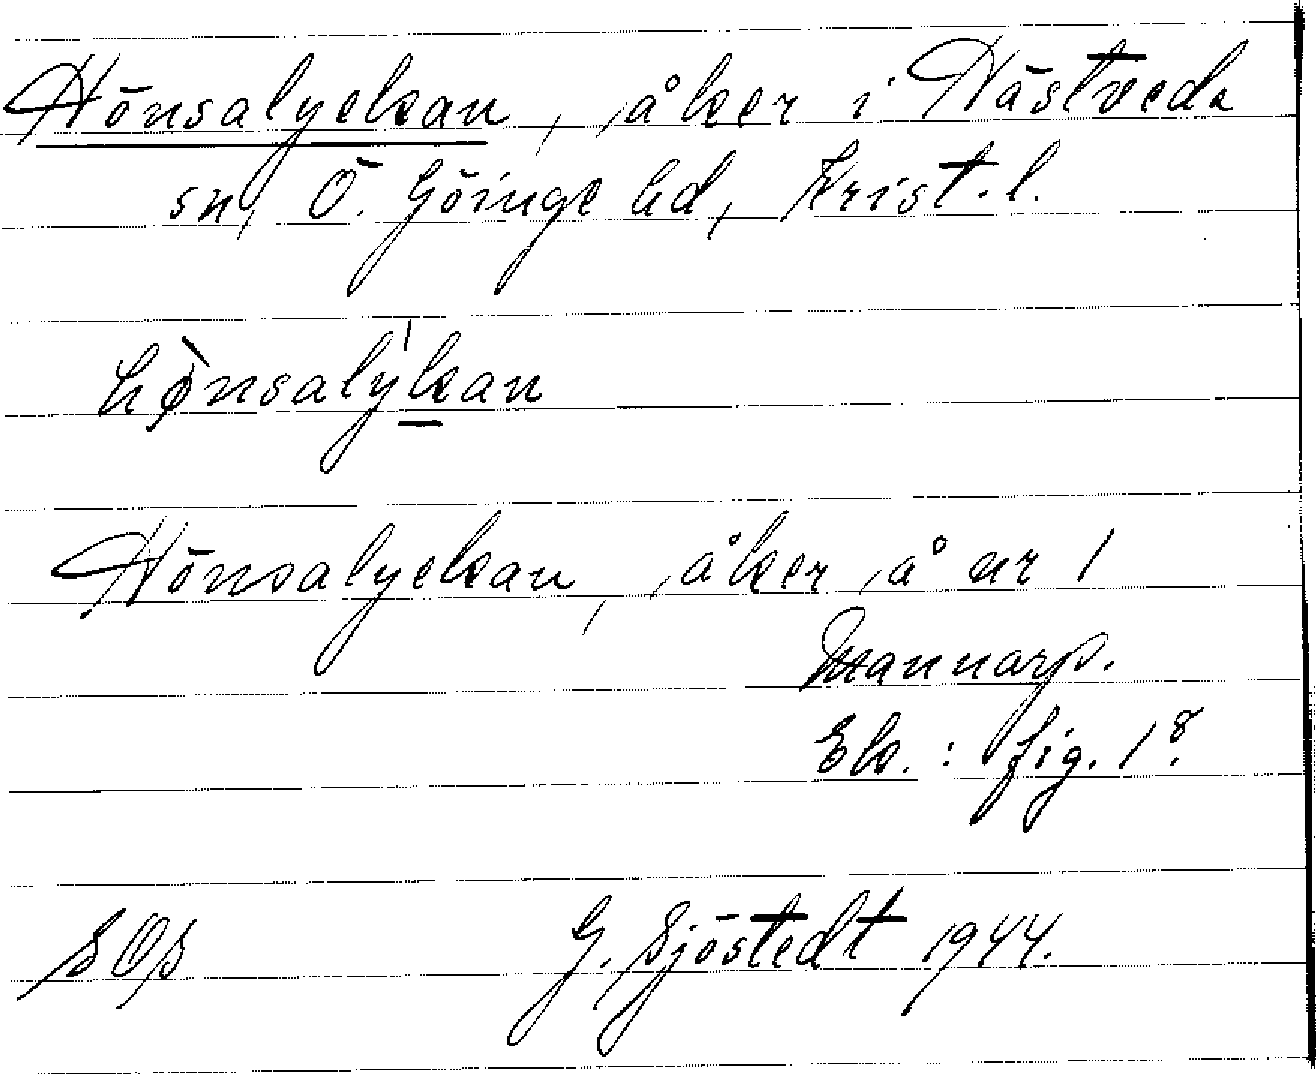 Hönsalyckan, åker i Nästveds
sn, Ö. Göinge hd, Krist. l.
hø̀nsalýkan
Hönsalyckan, åker å nr 1
Mannarp.
Ek.: fig. 1⁸.
SOS G. Sjöstedt 1944.